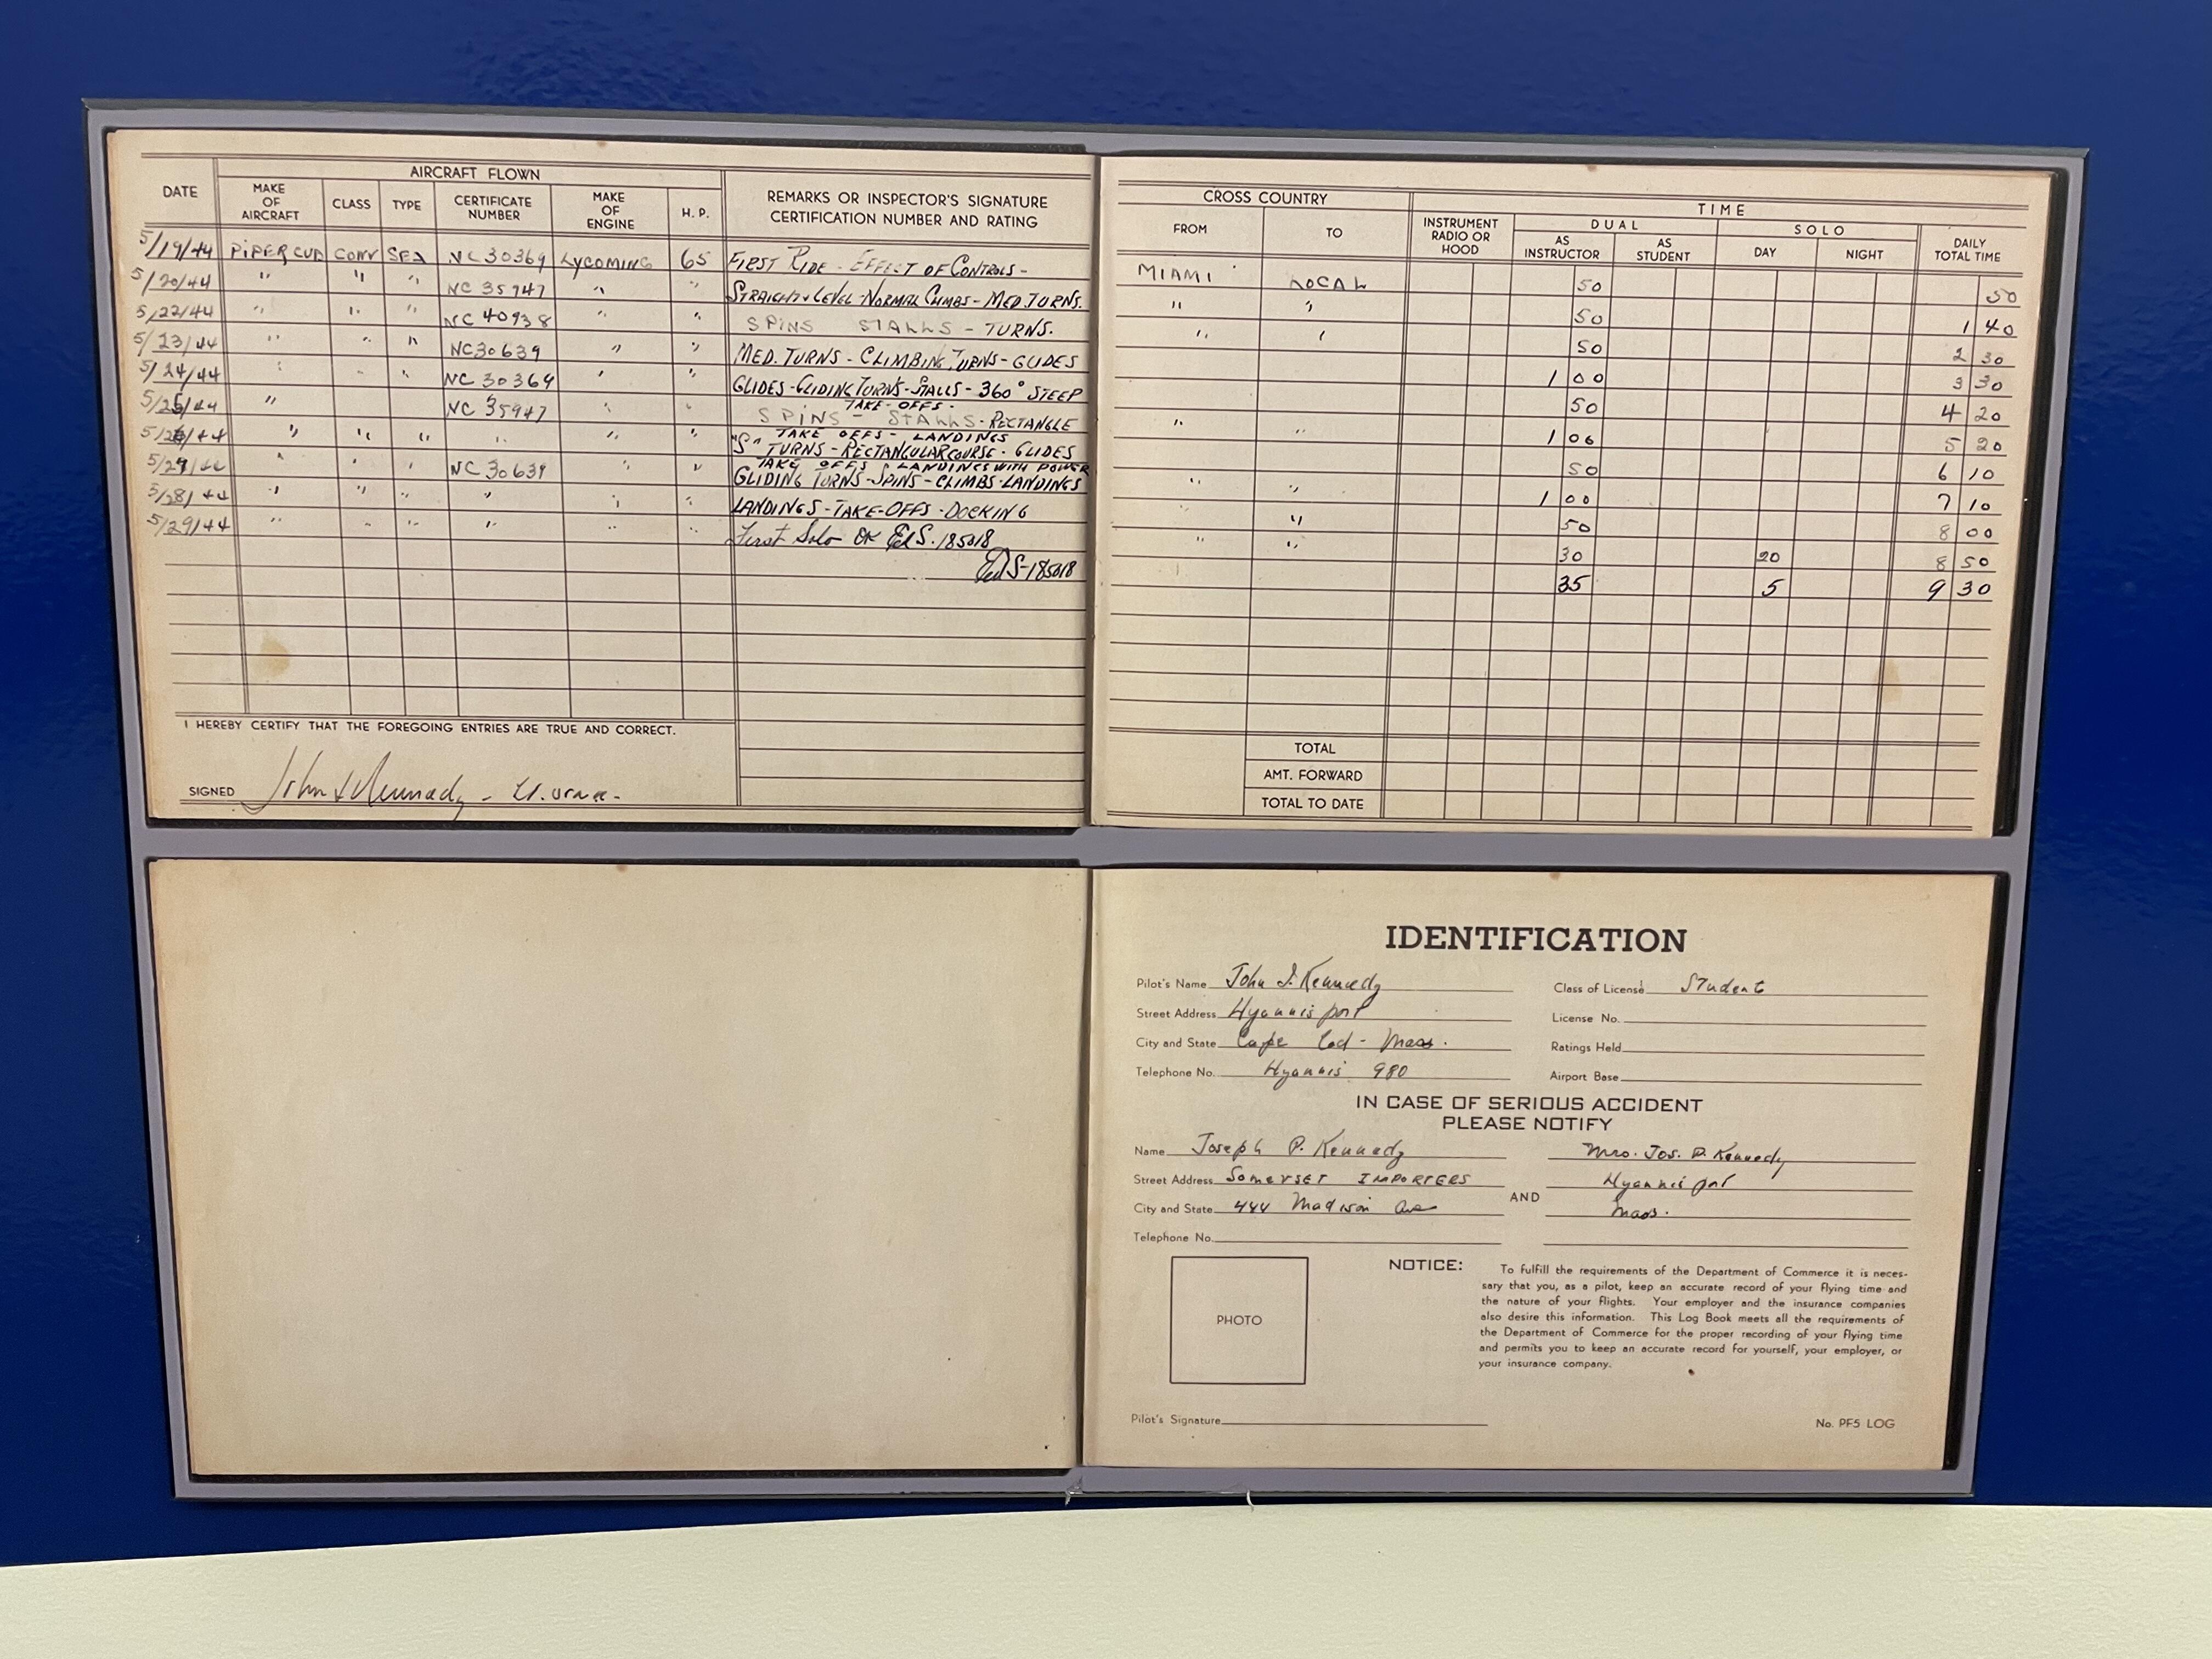 AIRCRAFT FLOWN
DATE MAKE OF AIRCRAFT CLASS TYPE CERTIFICATE NUMBER MAKE OF ENGINE H. P. REMARKS OR INSPECTOR'S SIGNATURE CERTIFICATION NUMBER AND RATING
5/19/44 PIPER CUB CONV SEA NC 30369 LYCOMING 65 FIRST RIDE - EFFECT OF CONTROLS -
5/20/44 " " " NC 35947 " " STRAIGHT & LEVEL - NORMAL CLIMBS - MED. TURNS.
5/22/44 " " " NC 40938 " " SPINS STALLS - TURNS.
5/23/44 " " " NC 30639 " " MED. TURNS - CLIMBING TURNS - GLIDES
5/24/44 " " " NC 30369 " " GLIDES - GLIDING TURNS - STALLS - 360° STEEP
TAKE-OFFS -
5/25/44 " NC 35947 " " SPINS - STALLS - RECTANGLE
TAKE OFFS - LANDINGS
5/26/44 " " " " " " "S" TURNS - RECTANGULAR COURSE - GLIDES
TAKE OFFS & LANDINGS WITH POWER
" " " NC 30639 " " GLIDING TURNS - SPINS - CLIMBS - LANDINGS
5/28/44 " " " " " " LANDINGS - TAKE-OFFS - DOCKING
5/29/44 " " " " " First Solo OK Ed S. 185018
Ed S-185018
I HEREBY CERTIFY THAT THE FOREGOING ENTRIES ARE TRUE AND CORRECT.
SIGNED John F Kennedy - Lt.
CROSS COUNTRY TIME
FROM TO INSTRUMENT RADIO OR HOOD DUAL SOLO DAILY TOTAL TIME
AS INSTRUCTOR AS STUDENT DAY NIGHT
MIAMI LOCAL 50 50
" " 50 1 40
" " 50 2 30
1 00 3 30
50 4 20
" " 1 00 5 20
50 6 10
" " 1 00 7 10
" 50 8 00
" 30 20 8 50
35 5 9 30
TOTAL
AMT. FORWARD
TOTAL TO DATE
IDENTIFICATION
Pilot's Name John F. Kennedy Class of License Student
Street Address Hyannis port License No.
City and State Cape Cod - Mass. Ratings Held
Telephone No. Hyannis 980 Airport Base
IN CASE OF SERIOUS ACCIDENT
PLEASE NOTIFY
Name Joseph P. Kennedy Mrs. Jos. P. Kennedy
Street Address SOMERSET IMPORTERS Hyannis port
City and State 444 Madison Ave AND Mass.
Telephone No.
PHOTO
NOTICE: To fulfill the requirements of the Department of Commerce it is neces-
sary that you, as a pilot, keep an accurate record of your flying time and
the nature of your flights. Your employer and the insurance companies
also desire this information. This Log Book meets all the requirements of
the Department of Commerce for the proper recording of your flying time
and permits you to keep an accurate record for yourself, your employer, or
your insurance company.
Pilot's Signature
No. PF5 LOG